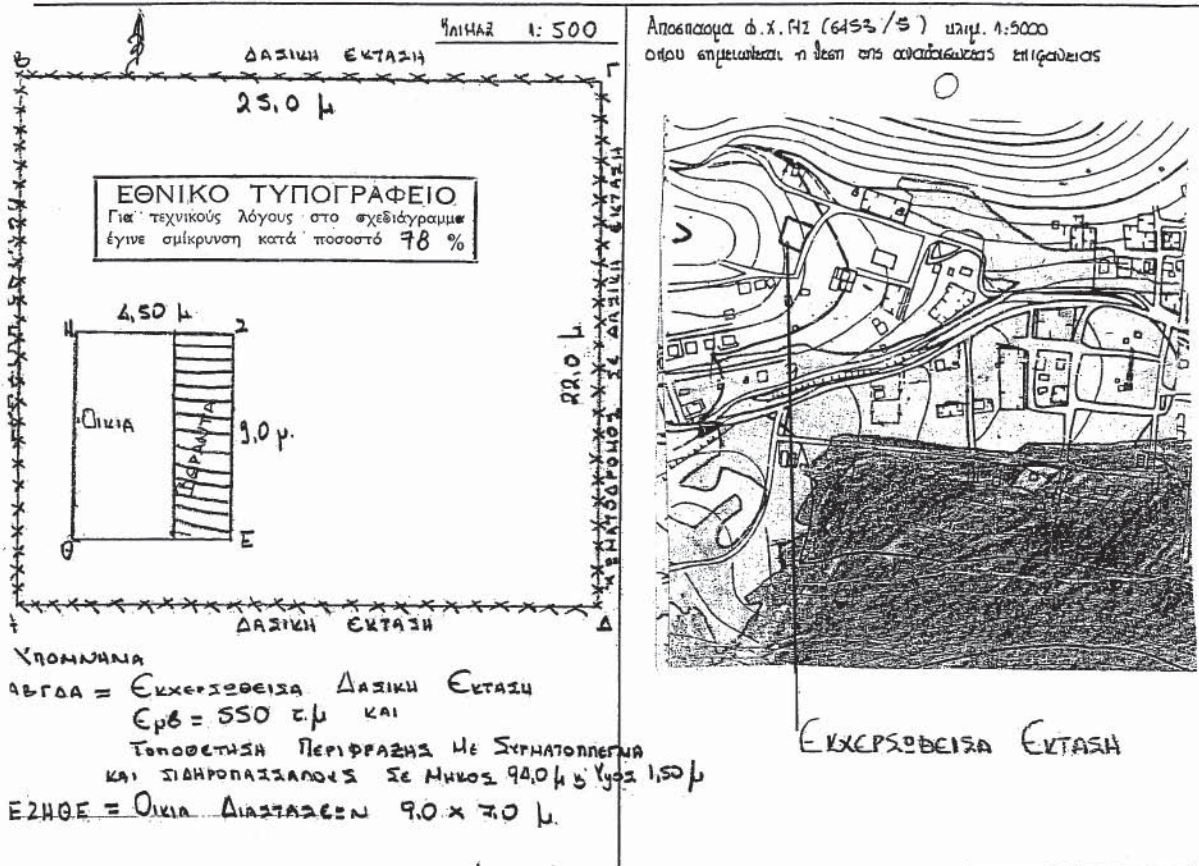 ΚΛΙΜΑΞ 1:500
ΔΑΣΙΚΗ ΕΚΤΑΣΗ
Β
Γ
25,0 μ
ΕΘΝΙΚΟ ΤΥΠΟΓΡΑΦΕΙΟ
Για τεχνικούς λόγους στο σχεδιάγραμμα
έγινε σμίκρυνση κατά ποσοστό 78 %
4,50 μ
Η
Ζ
ΟΙΚΙΑ
ΒΕΡΑΝΤΑ
9,0 μ.
Θ
Ε
22,0 μ
ΧΩΜΑΤΟΔΡΟΜΟΣ ΣΕ ΔΑΣΙΚΗ ΕΚΤΑΣΗ
ΔΑΣΙΚΗ ΕΚΤΑΣΗ
Δ
ΥΠΟΜΝΗΜΑ
ΑΒΓΔΑ = ΕΚΧΕΡΣΩΘΕΙΣΑ ΔΑΣΙΚΗ ΕΚΤΑΣΗ
Εμβ = 550 τ.μ ΚΑΙ
ΤΟΠΟΘΕΤΗΣΗ ΠΕΡΙΦΡΑΞΗΣ ΜΕ ΣΥΡΜΑΤΟΠΛΕΓΜΑ
ΚΑΙ ΣΙΔΗΡΟΠΑΣΣΑΛΟΥΣ ΣΕ ΜΗΚΟΣ 94,0 μ Υψος 1,50 μ
ΕΖΗΘΕ = ΟΙΚΙΑ ΔΙΑΣΤΑΣΕΩΝ 9.0 x 7.0 μ.
Αποσπασμα Φ.Χ. ΓΥΣ (6453/5) κλιμ. 1:5000
οπου σημειωνεται η θεση της αναδασωτεας επιφανειας
ΕΚΧΕΡΣΩΘΕΙΣΑ ΕΚΤΑΣΗ